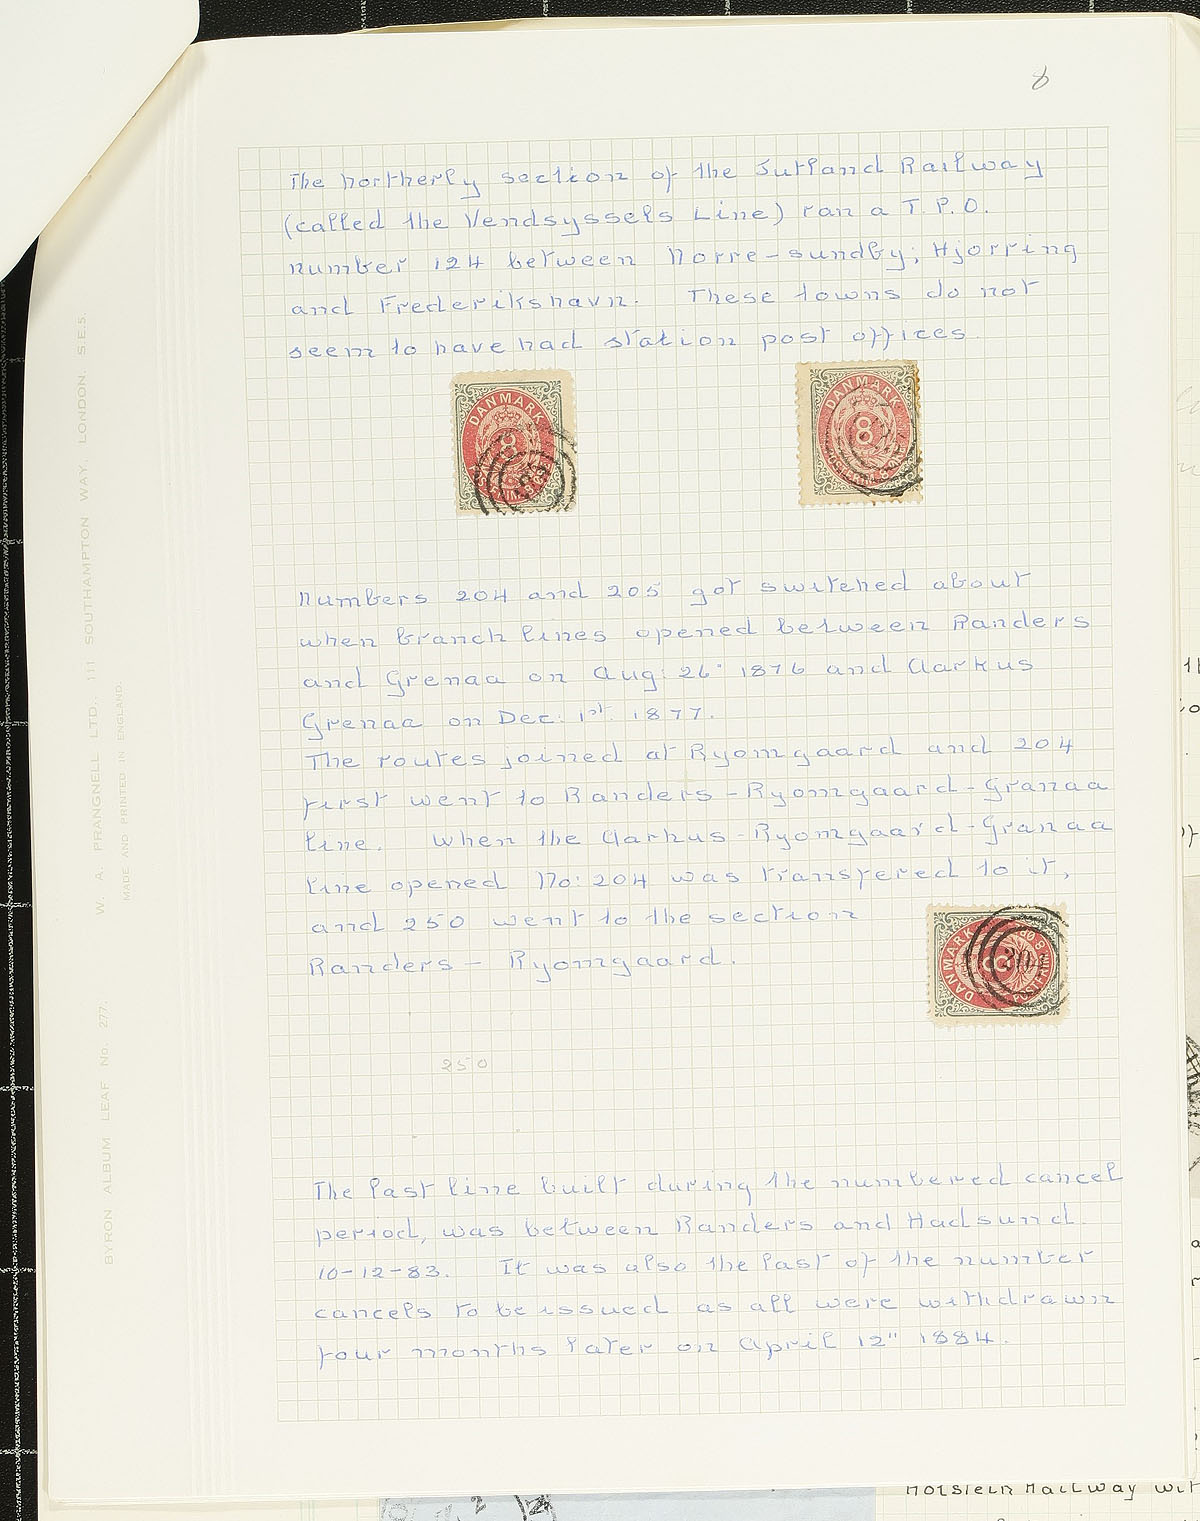 8
The northerly section of the Jutland Railway
(called the Vendsyssels Line) ran a T.P.O.
number 124 between Norre-sundby; Hjorring
and Frederikshavn. These towns do not
seem to have had station post offices.
DANMARK
8
DANMARK
8
Numbers 204 and 205 got switched about
when branch lines opened between Randers
and Grenaa on Aug: 26" 1876 and Aarkus
Grenaa on Dec: 1st. 1877.
The routes joined at Ryomgaard and 204
first went to Randers-Ryomgaard-Granaa
line. When the Aarhus-Ryomgaard-Granaa
line opened No: 204 was transfered to it,
and 250 went to the section
Randers - Ryomgaard.
DANMARK
250
The last line built during the numbered cancel
period, was between Randers and Hadsund
10-12-83. It was also the last of the number
cancels to be issued as all were withdrawn
four months later on April 12" 1884.
W. A. PRANGNELL LTD. 111 SOUTHAMPTON WAY, LONDON. S.E.5.
MADE AND PRINTED IN ENGLAND.
BYRON ALBUM LEAF No. 277.
Holstein Railway wit